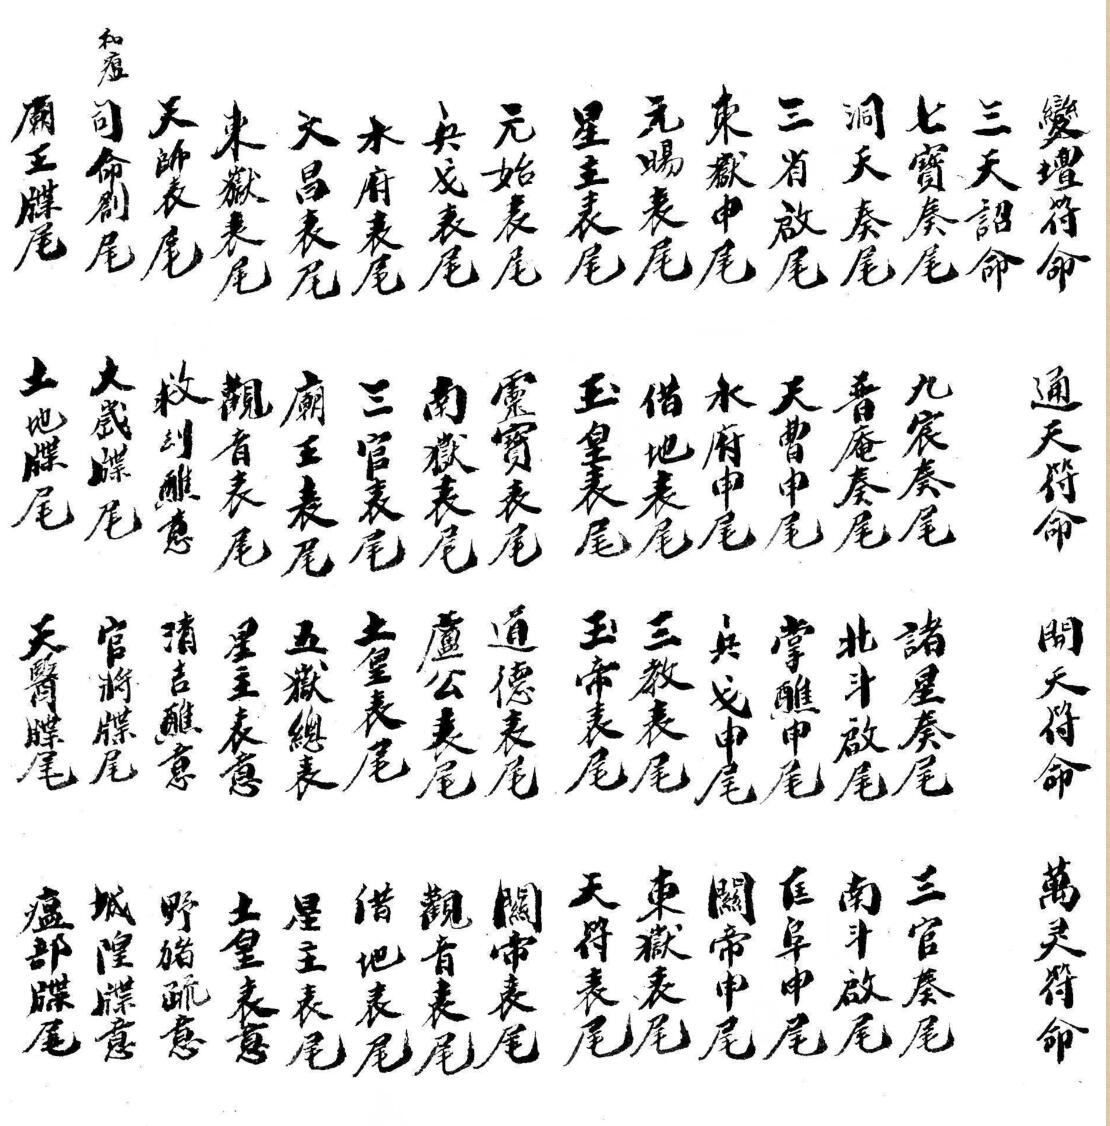 變壇符命
三天詔命
七寶奏尾
洞天奏尾
三省啟尾
東嶽申尾
元賜表尾
星主表尾
元始表尾
兵戈表尾
水府表尾
文昌表尾
東嶽表尾
天師表尾
和瘟
司命劄尾
廟王牒尾
通天符命
九宸奏尾
普庵奏尾
天曹申尾
水府申尾
借地表尾
玉皇表尾
靈寶表尾
南嶽表尾
三官表尾
廟王表尾
觀音表尾
救醮意
大歲牒尾
土地牒尾
開天符命
諸星奏尾
北斗啟尾
掌醮申尾
兵戈申尾
三教表尾
玉帝表尾
道德表尾
盧公表尾
土皇表尾
五嶽總表
星主表意
清吉醮意
官將牒尾
天醫牒尾
萬灵符命
三官奏尾
南斗啟尾
阜申尾
關帝申尾
東嶽表尾
天符表尾
關帝表尾
觀音表尾
借地表尾
星主表尾
土皇表意
野猪疏意
城隍牒意
瘟部牒尾